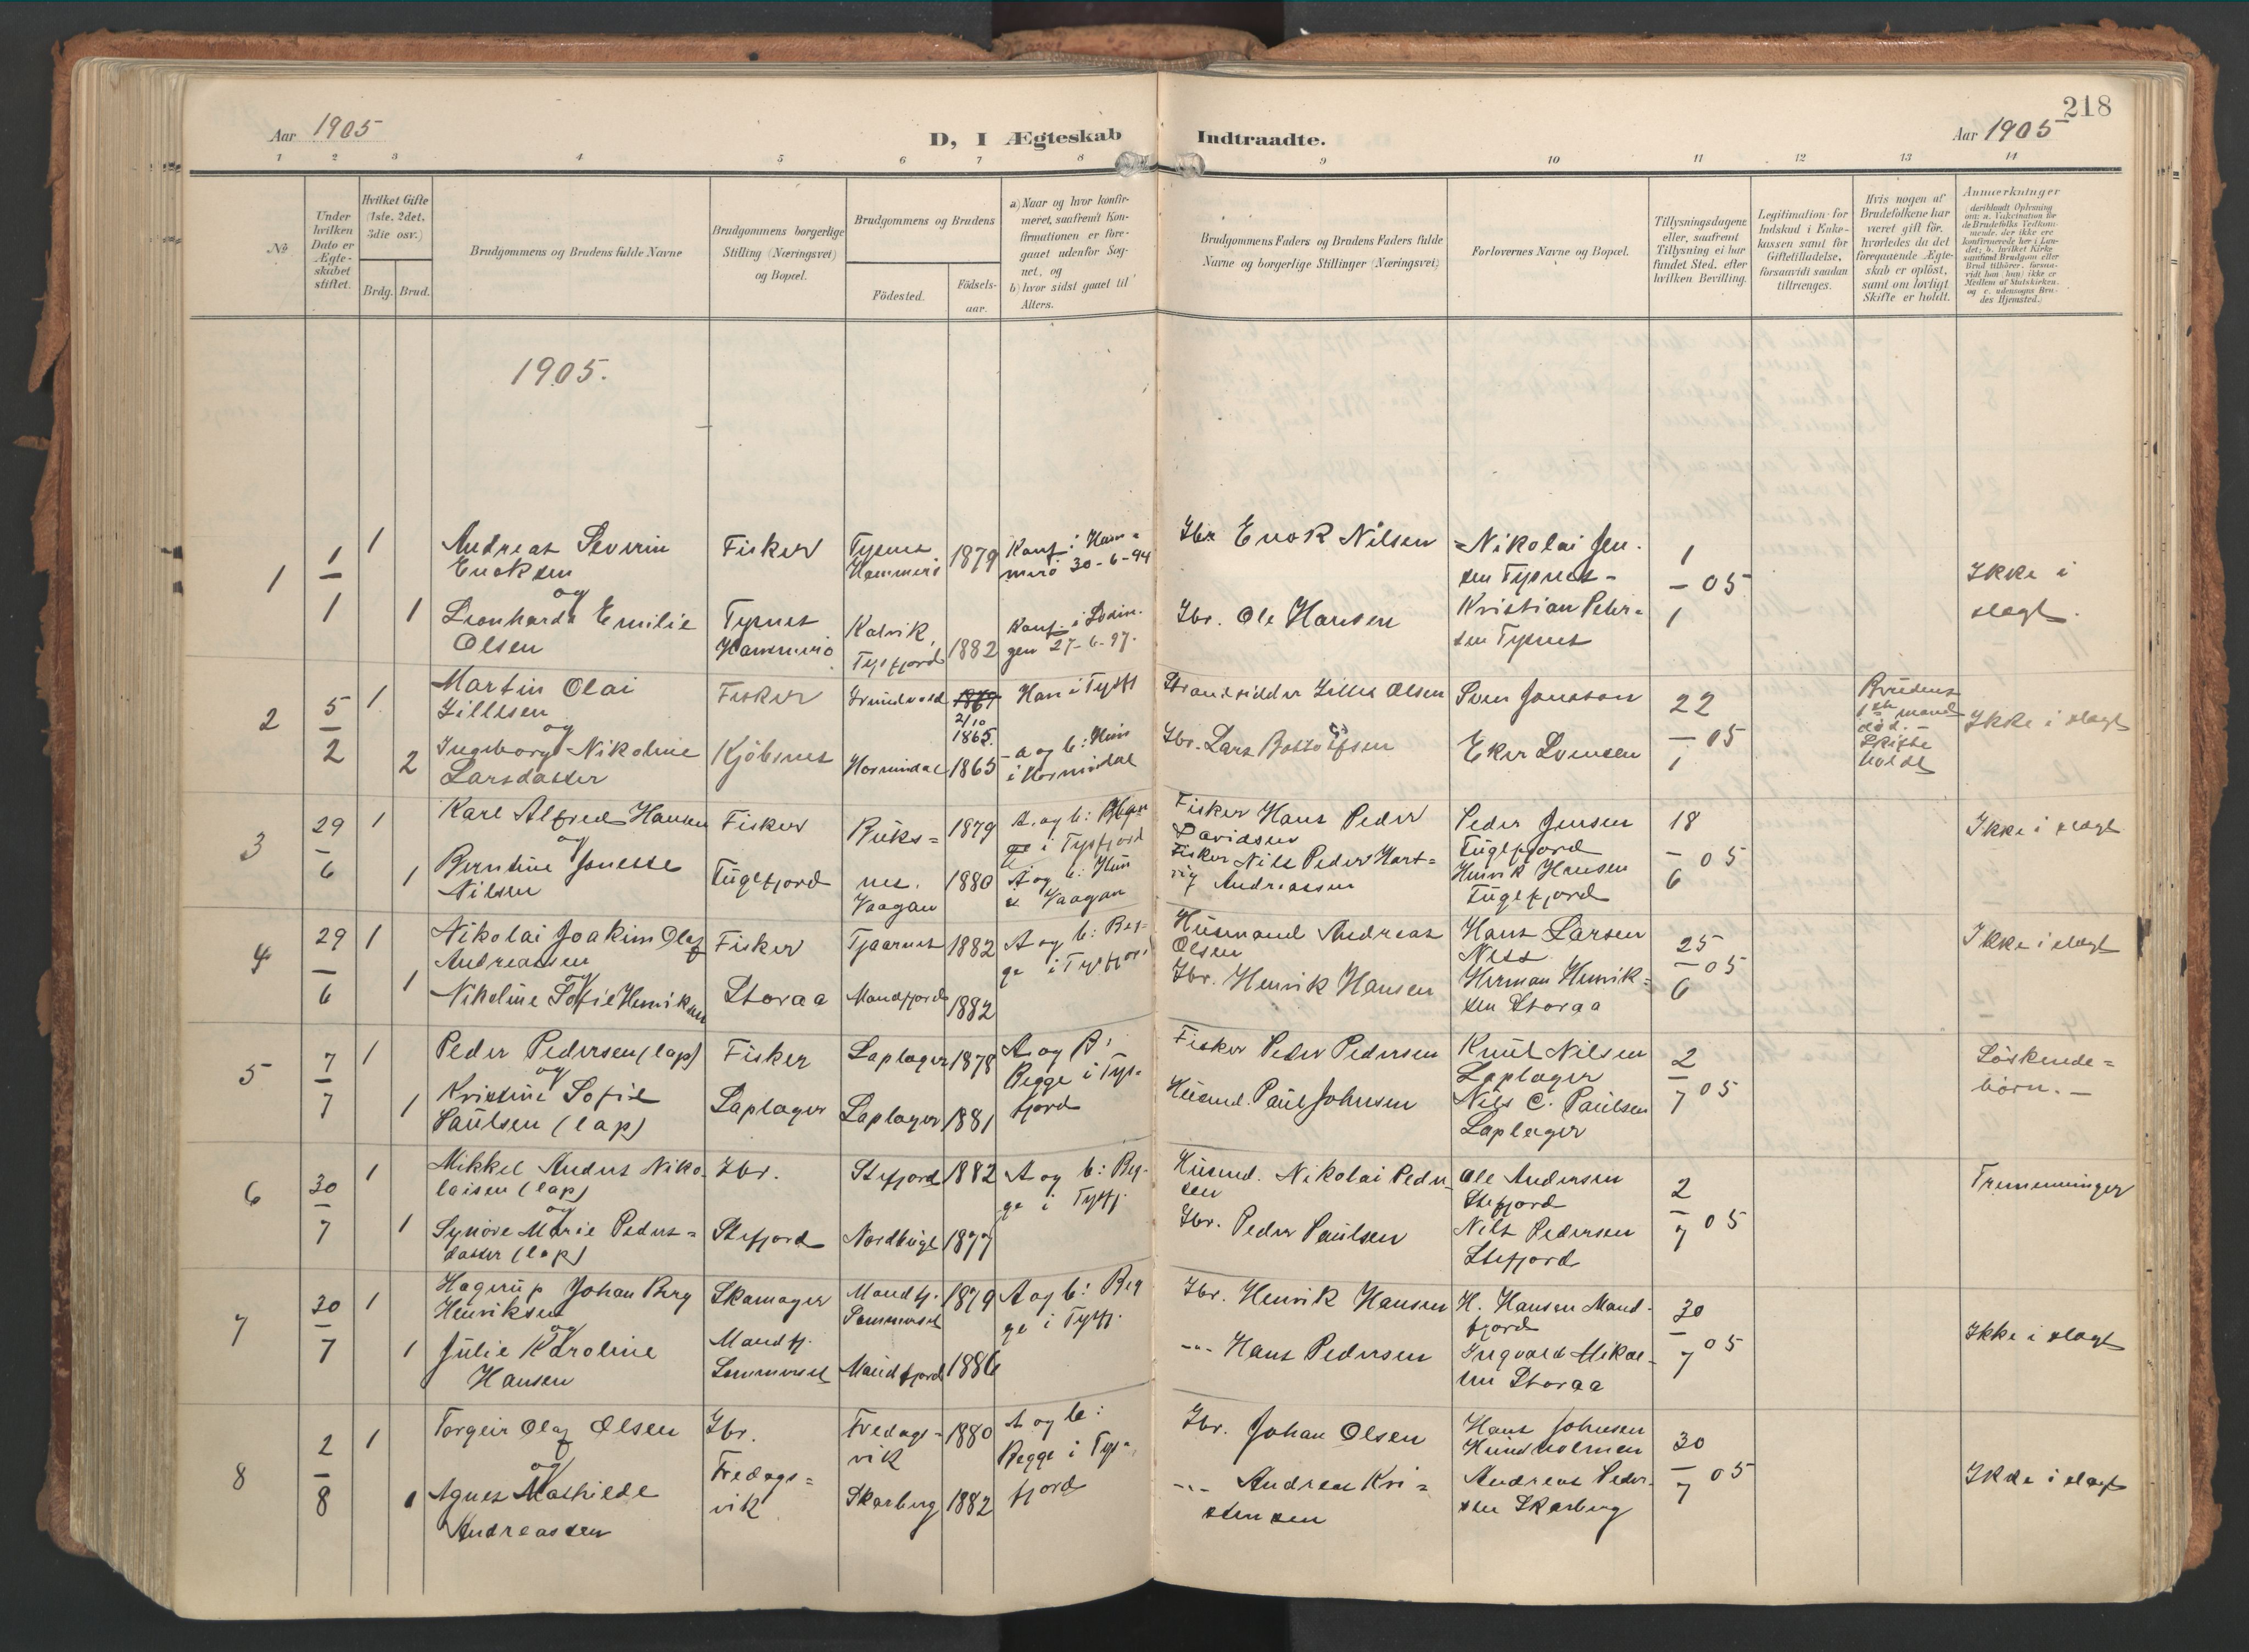 218
Aar 1905
D, I Ægteskab Indtraadte.
Aar 1905
1 2 3 4 5 6 7 8 9 10 11 12 13 14
No
Under hvilken Dato er Ægteskabet stiftet.
Hvilket Gifte (1ste, 2det, 3die osv.)
Brdg. Brud.
Brudgommens og Brudens fulde Navne
Brudgommens borgerlige Stilling (Næringsvei) og Bopæl.
Brudgommens og Brudens
Födested.
Födsels-aar.
a) Naar og hvor konfirmeret, saafremt Konfirmationen er foregaaet udenfor Sognet, og
b) hvor sidst gaaet til Alters.
Brudgommens Faders og Brudens Faders fulde Navne og borgerlige Stillinger (Næringsvei)
Forlovernes Navne og Bopæl.
Tillysningsdagene eller, saafremt Tillysning ei har fundet Sted, efter hvilken Bevilling.
Legitimation for Indskud i Enkekassen samt for Giftetilladelse, forsaavidt saadan tiltrænges.
Hvis nogen af Brudefolkene har været gift før, hvorledes da det foregaaende Ægteskab er oplöst, samt om lovligt Skifte er holdt.
Anmærkninger
(deriblandt Oplysning om: a. Vakcination for de Brudefolks Vedkommende, der ikke ere konfirmerede her i Landet; b. hvilket Kirkesamfund Brudgom eller Brud tilhörer, forsaavidt han (hun) ikke er Medlem af Statskirken, og c. udensogns Brudes Hjemsted.)
1905.
1
1/1
1
Andreas Severin
Enoksen
og
1 Leonharda Emilie
Olsen
Fisker
Tysnes
Hammerö
Tysnes
Hammerö 1879
Kalvik,
Tysfjord 1882
Konf. i Ham=
merö 30-6-94
Konf. i Lödin=
gen 27-6-97.
Gbr Enok Nilsen
Gbr. Ole Hansen
Nikolai Jen=
sen Tysnes-
Kristian Peder=
sen Tysnes
1/1 05
Ikke i
slægt.
2
5/2
1
Martin Olai
Zillesen
og
2 Ingeborg Nikoline
Larsdatter
Fisker
Kjöbsnes
1867
2/10
1865.
Hornindal 1865
Han i Tysfj
a og b: Hun
i Hornindal
Strandsidder Zilles Olsen
Gbr. Lars Rostolfsen
Sven Jonsson
Eker Svensen
22/1 05
Brudens
1ste mand
död. -
Skifte
holdt
Ikke i slægt
3
29/6
1
Karl Alfred Hansen
og
1 Berntine Jonette
Nilsen
Fisker
Fuglefjord
Röks= 1879
nes. 1880
Vaagan
A. og b: Beg
ge i Tysfjord
A og b: Hun
i Vaagan
Fisker Hans Peder
Davidsen
Fisker Nils Peder Hart=
vig Andreassen
Peder Jensen
Fuglefjord
Henrik Hansen
Fuglefjord
18/6 05
Ikke i slægt
4
29/6
1
Nikolai Joakim Olaf
Andreassen
og
1 Nikoline Sofie Henriksen
Fisker
Storaa
Tjaarnes 1882
Mandfjord 1882
A og b: Beg=
ge i Tysfjord
Husmand Andreas
Olsen
Gbr. Henrik Hansen
Hans Larsen
Ness
Herman Henrik=
sen Storaa
25/6 05
Ikke i slægt
5
7/7
1
Peder Pedersen (lap)
og
1 Kristine Sofie
Paulsen (lap)
Fisker
Laplager
Laplager 1878
Laplager 1881
A og B:
Begge i Tys=
fjord
Fisker Peder Pedersen
Husmd. Paul Johnsen
Knut Nilsen
Laplager
Nils C. Paulsen
Laplager
2/7 05
Söskende=
börn. -
6
30/7
1
Mikkel Anders Niko=
laisen (lap)
og
1 Synöve Marie Peders=
datter (lap)
Gbr.
Stefjord
Stefjord 1882
Nordbugt 1877
A og b: Beg=
ge i Tysfj.
Husmd. Nikolai Peder=
sen
Gbr. Peder Paulsen
Ole Andersen
Stefjord
Nils Pedersen
Stefjord
2/7 05
Tremenninger
7
30/7
1
Hagerup Johan Berg
Henriksen
og
1 Julie Karoline
Hansen
Skomager
Mandfj.
Sommerset
Mandfj. 1879
Sommerset
Mandfjord 1886
A og b: Beg
ge i Tysfj.
Gbr. Henrik Hansen
-"- Hans Pedersen
H. Hansen Mand=
fjord
Ingvald Mikal=
sen Storaa
30/7 05
Ikke i slægt
8
2/8
1
Torgeir Olaf Olsen
og
1 Agnes Mathilde
Andreassen
Gbr.
Fredags=
vik
Fredags= 1880
vik
Skarberg 1882
A og b:
Begge i Tys=
fjord
Gbr. Johan Olsen
-"- Andreas Kri=
stensen
Hans Johnsen
Hundholmen
Andreas Peder=
sen Skarberg
30/7 05
Ikke i slægt